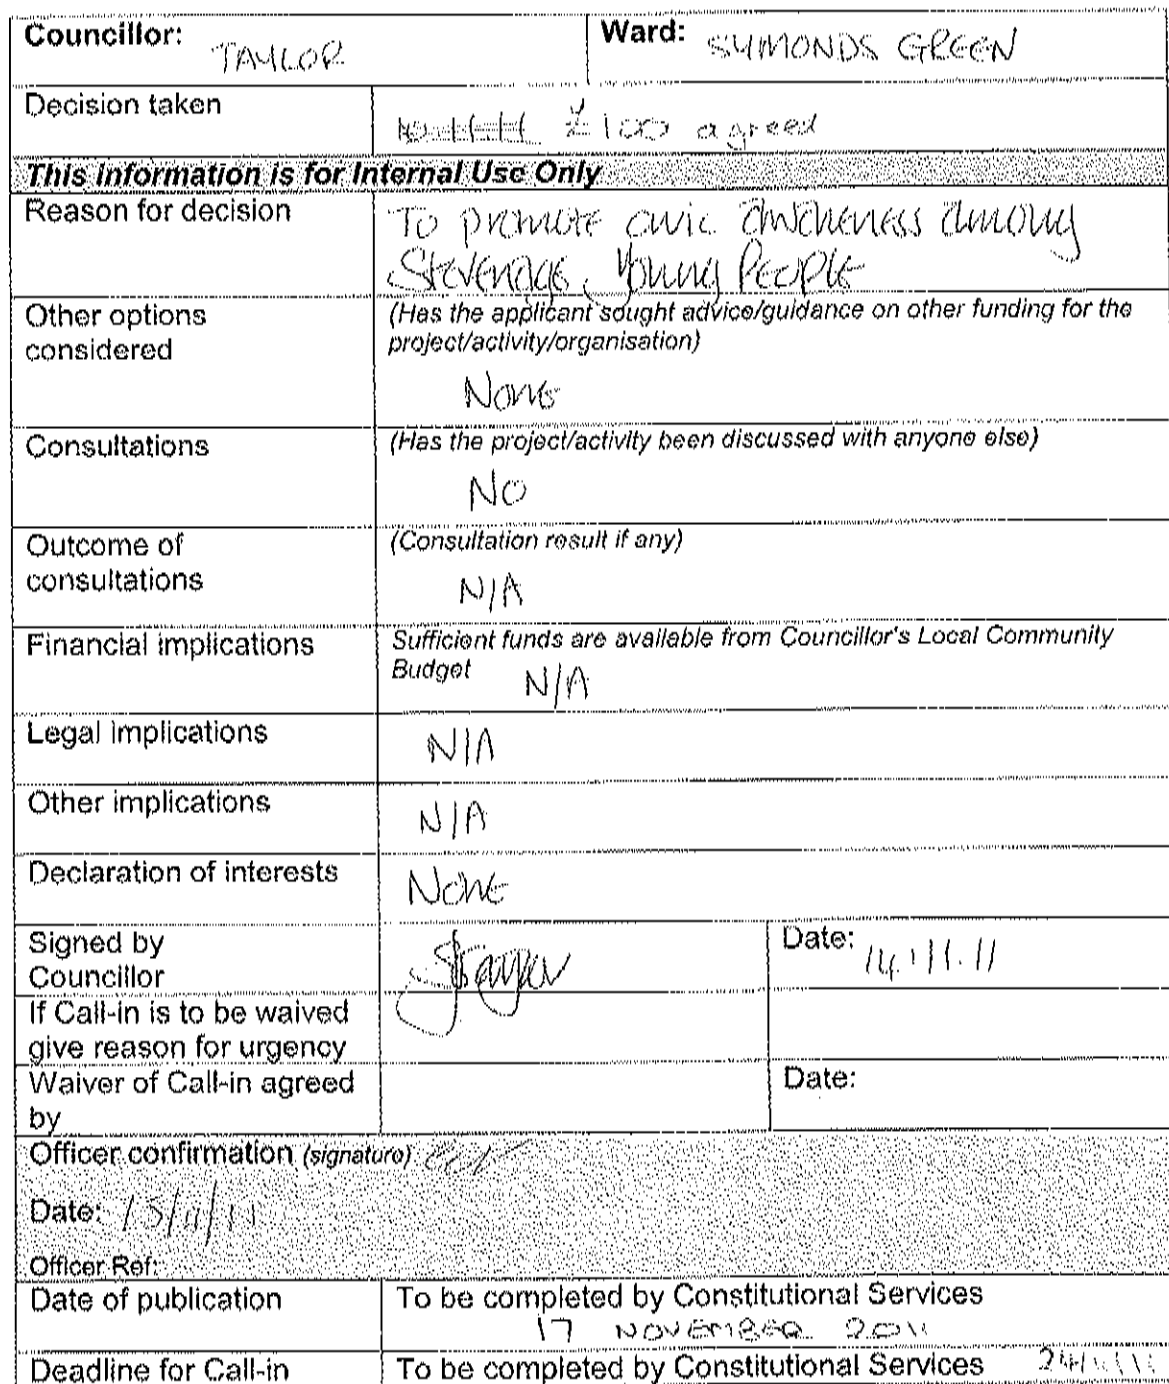 Councillor: TAYLOR Ward: SYMONDS GREEN
Decision taken £100 agreed
This information is for Internal Use Only
Reason for decision To promote civic awareness among
Stevenage Young People
Other options (Has the applicant sought advice/guidance on other funding for the
considered project/activity/organisation)
None
Consultations (Has the project/activity been discussed with anyone else)
NO
Outcome of (Consultation result if any)
consultations N/A
Financial implications Sufficient funds are available from Councillor's Local Community
Budget N/A
Legal implications N/A
Other implications N/A
Declaration of interests None
Signed by Date: 14.11.11
Councillor
If Call-in is to be waived
give reason for urgency
Waiver of Call-in agreed Date:
by
Officer confirmation (signature)
Date: 15/11/11
Officer Ref:
Date of publication To be completed by Constitutional Services
17 NOVEMBER 2011
Deadline for Call-in To be completed by Constitutional Services